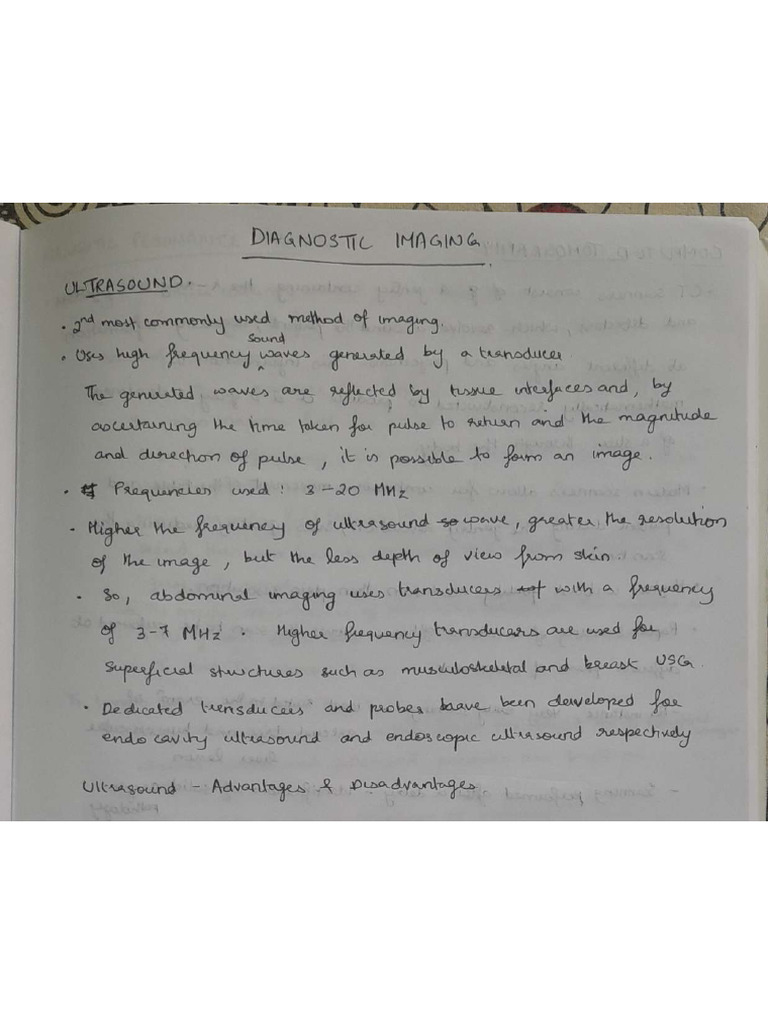 DIAGNOSTIC IMAGING
ULTRASOUND.
• 2nd most commonly used method of imaging.
• Uses high frequency sound waves generated by a transducer
The generated waves are reflected by tissue interfaces and, by
ascertaining the time taken for pulse to return and the magnitude
and direction of pulse, it is possible to form an image.
• Frequencies used: 3-20 MHz
• Higher the frequency of ultrasound wave, greater the resolution
of the image, but the less depth of view from skin.
• So, abdominal imaging uses transducers with a frequency
of 3-7 MHz. Higher frequency transducers are used for
superficial structures such as musculoskeletal and breast USG.
• Dedicated transducers and probes have been developed for
endocavity ultrasound and endoscopic ultrasound respectively
Ultrasound - Advantages & Disadvantages.